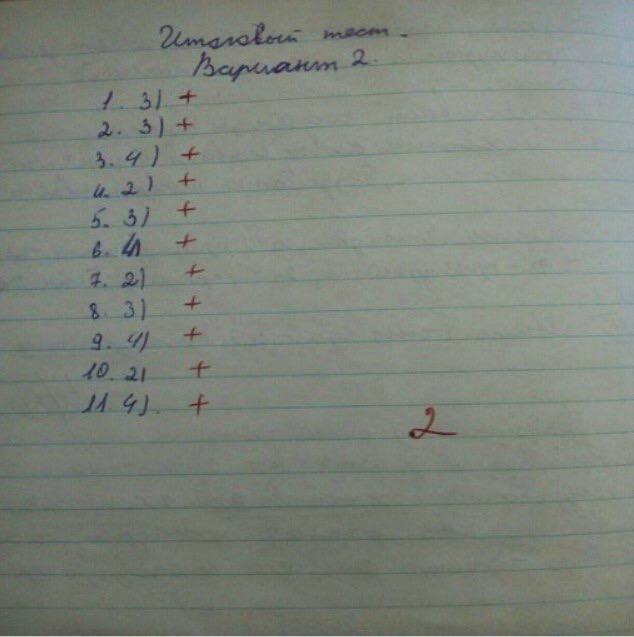 Итоговый тест.
Вариант 2.
1. 3) +
2. 3) +
3. 4) +
4. 2) +
5. 3) +
6. 4) +
7. 2) +
8. 3) +
9. 4) +
10. 2) +
11 4). +
2